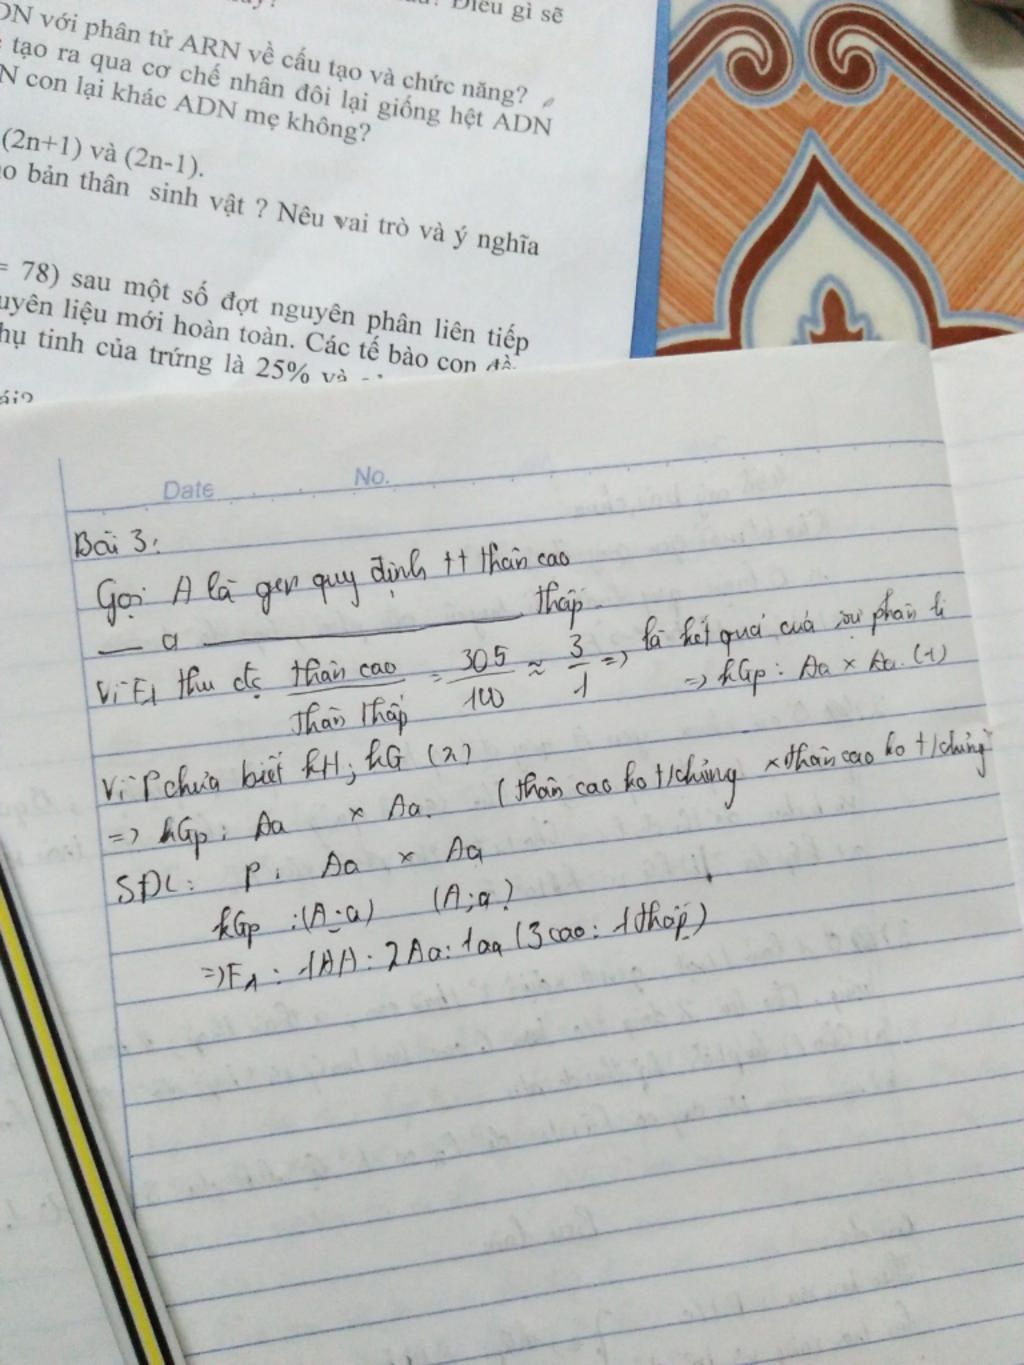 Điều gì sẽ
DN với phân tử ARN về cấu tạo và chức năng?
tạo ra qua cơ chế nhân đôi lại giống hệt ADN
N con lại khác ADN mẹ không?
(2n+1) và (2n-1).
o bản thân sinh vật ? Nêu vai trò và ý nghĩa
= 78) sau một số đợt nguyên phân liên tiếp
uyên liệu mới hoàn toàn. Các tế bào con đề
hụ tinh của trứng là 25% và
ái?
Date No.
Bài 3:
Gọi A là gen quy định tt thân cao
— a ———————— thấp.
Vì F1 thu đc thân cao / thân thấp = 305/100 ≈ 3/1 => là kết quả của sự phân li
=> kGp : Aa × Aa. (1)
Vì P chưa biết kH; kG (2)
=> kGp : Aa × Aa. (thân cao ko t/chủng × thân cao ko t/chủng
SĐL: P : Aa × Aa
kGp : (A;a) (A;a)
=> F1 : 1AA : 2Aa : 1aa (3 cao : 1 thấp)